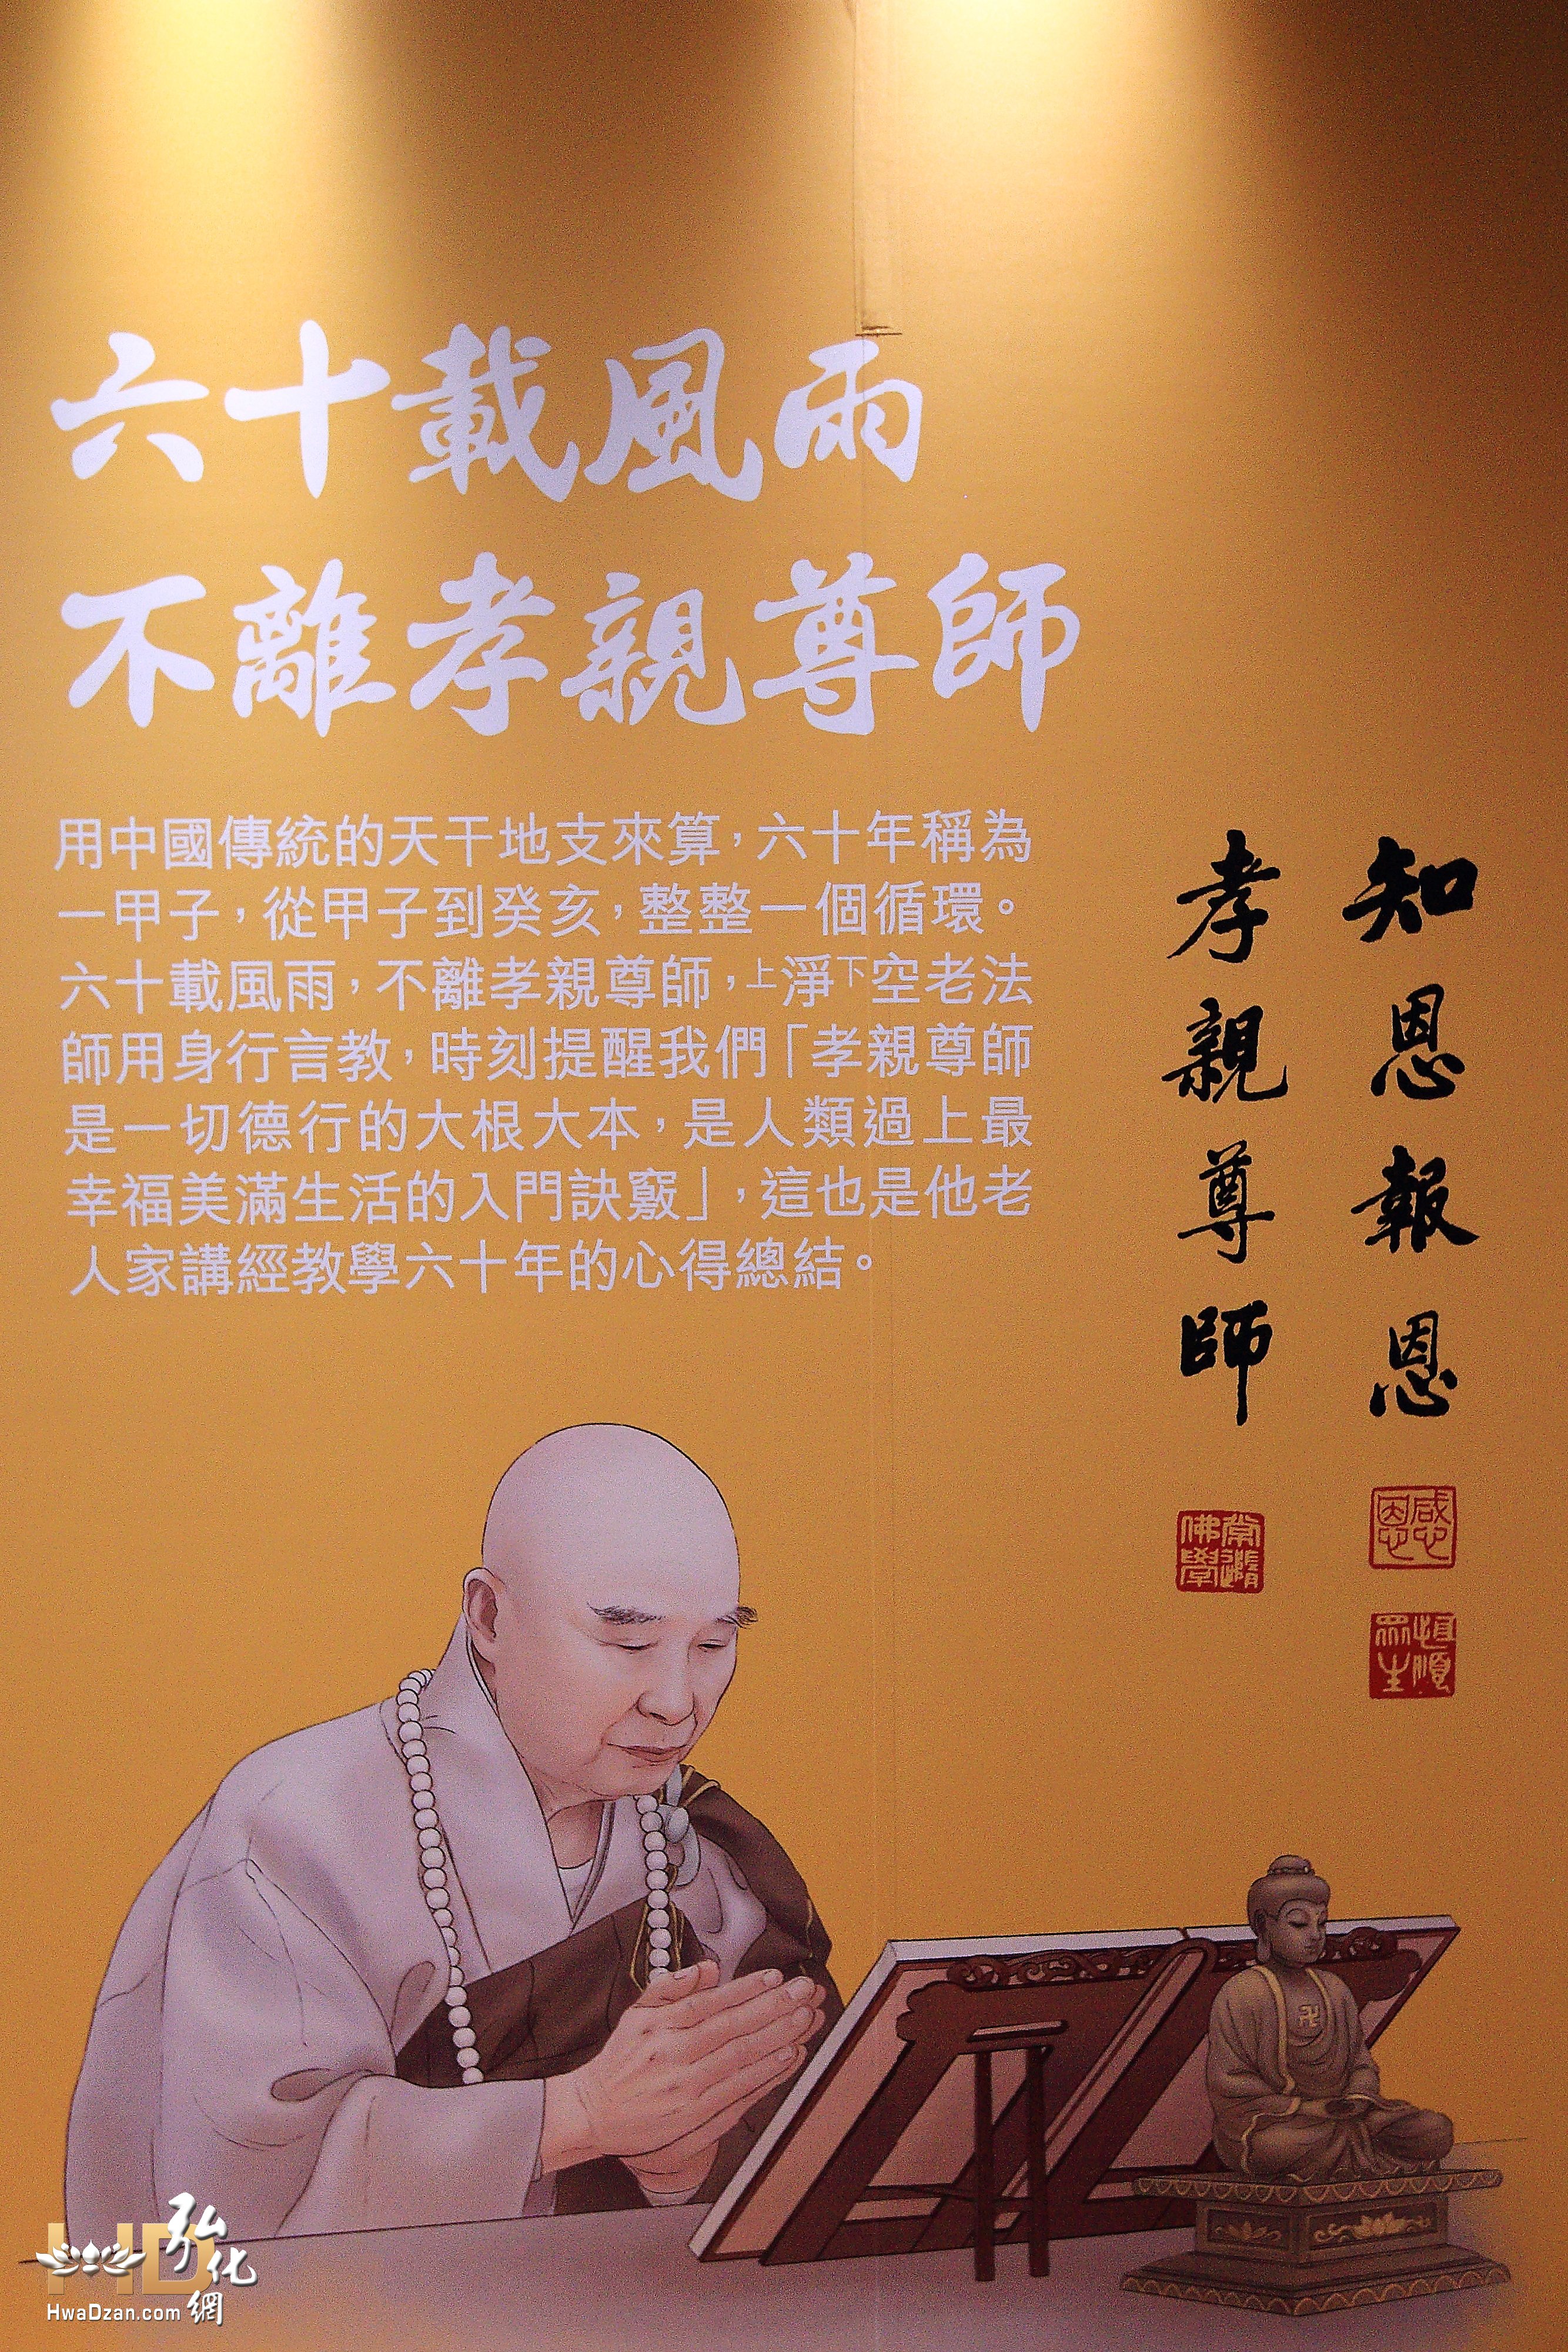 六十載風雨
不離孝親尊師
用中國傳統的天干地支來算，六十年稱為
一甲子，從甲子到癸亥，整整一個循環。
六十載風雨，不離孝親尊師，上淨下空老法
師用身行言教，時刻提醒我們「孝親尊師
是一切德行的大根大本，是人類過上最
幸福美滿生活的入門訣竅」，這也是他老
人家講經教學六十年的心得總結。
知恩報恩
孝親尊師
感恩
恒順眾生
常隨佛學
HD
弘化網
HwaDzan.com